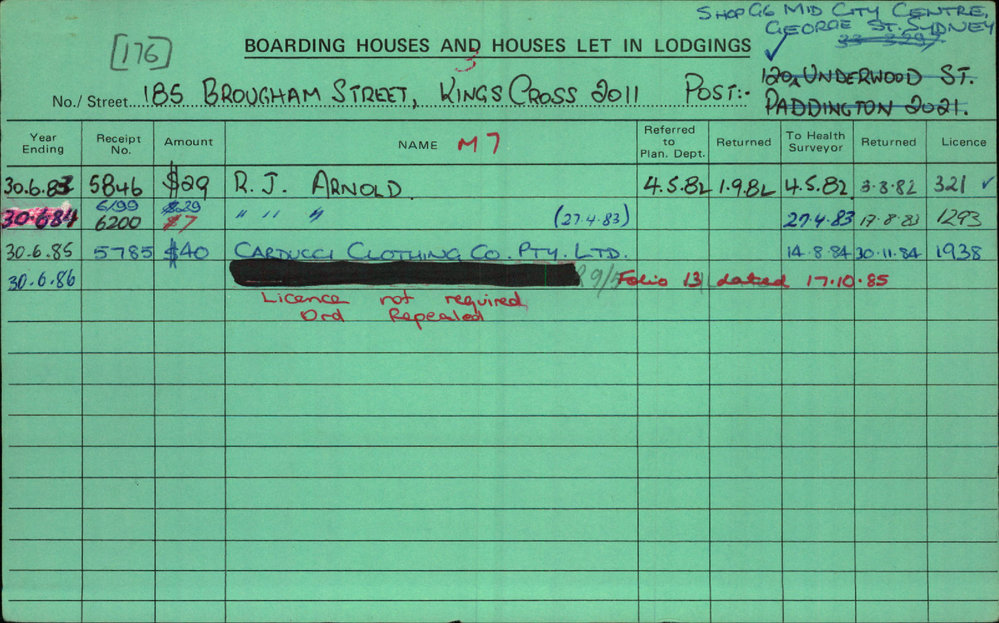 SHOP G6 MID CITY CENTRE,
GEORGE ST. SYDNEY
[176]
BOARDING HOUSES AND HOUSES LET IN LODGINGS
3
120 UNDERWOOD ST.
No./Street 185 BROUGHAM STREET, KINGS CROSS 2011 POST:-
PADDINGTON 2021.
Year Ending Receipt No. Amount NAME M7 Referred to Plan. Dept. Returned To Health Surveyor Returned Licence
30.6.83 5846 $29 R. J. ARNOLD. 4.5.82 1.9.82 4.5.82 3.8.82 321 ✓
6199 $29
30.6.84 6200 $7 " " " (27.4.83) 27.4.83 17.8.83 1293
30.6.85 5785 $40 CARDUCCI CLOTHING CO. PTY. LTD. 14.8.84 30.11.84 1938
30.6.86 Folio 13 dated 17.10.85
Licence not required
Ord Repealed